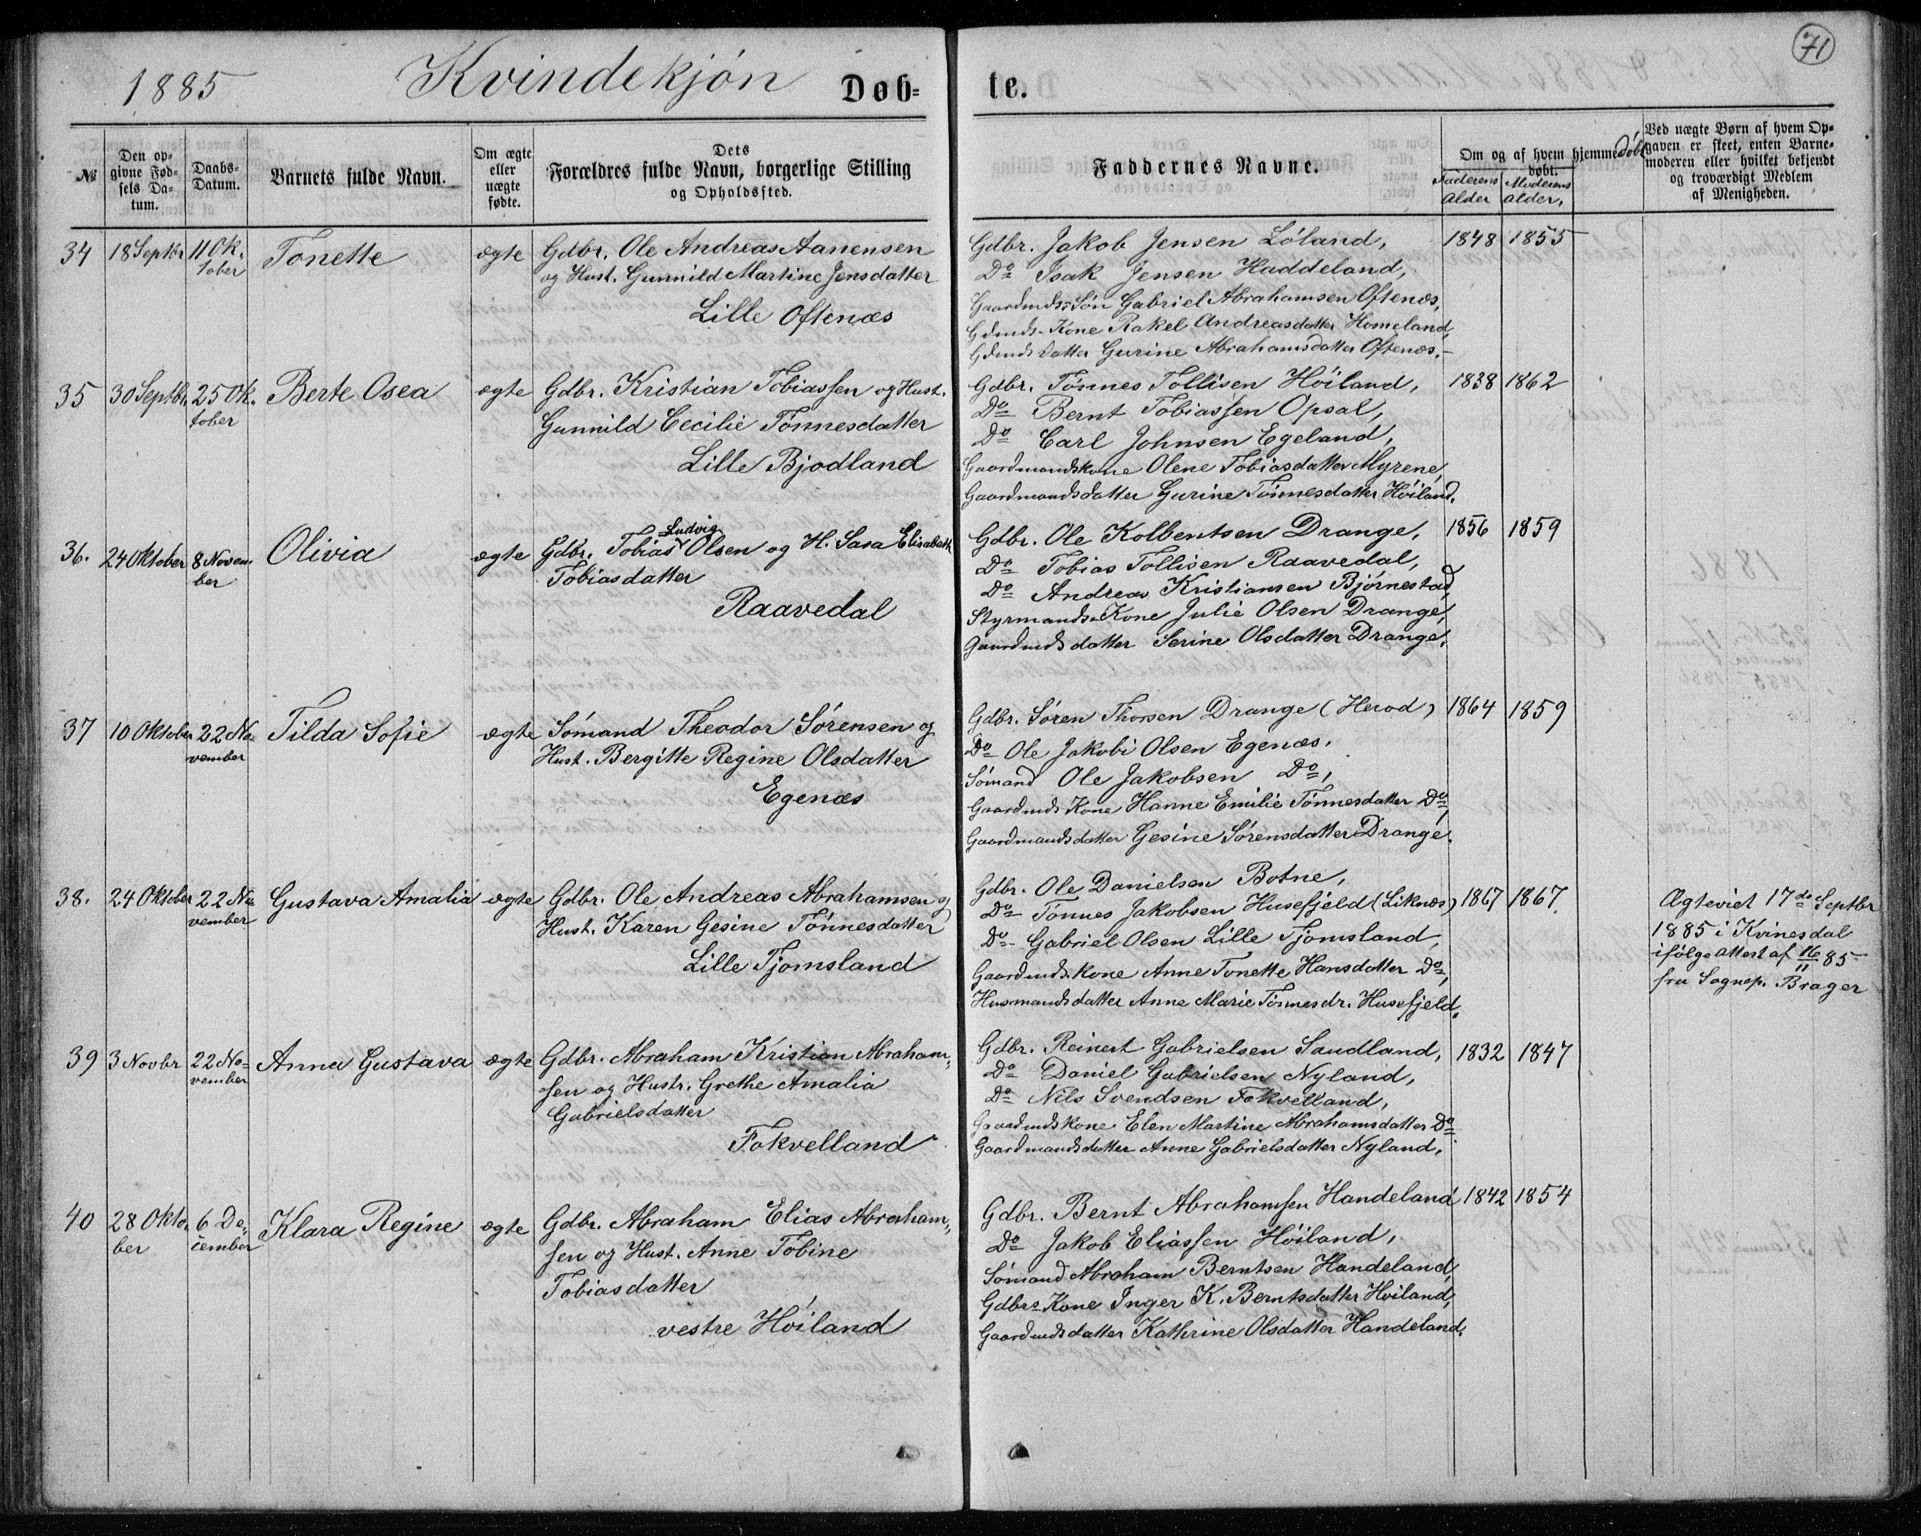 71
1885 Kvindekjön Døb- te.
№
Den op-
givne Fød-
sels Da-
tum.
Daabs-
Datum.
Barnets fulde Navn.
Om ægte
eller
uægte
fødte.
Dets
Forældres fulde Navn, borgerlige Stilling
og Opholdssted.
Faddernes Navne.
Om og af hvem hjemmedøbt
døbt.
Faderens
Alder
Moderens
alder.
Ved uægte Børn af hvem Op-
gaven er skeet, enten Barne-
moderen eller hvilket bekjendt
og troværdigt Medlem
af Menigheden.
34 18 Septbr 11 Ok-
tober
Tonette
ægte
Gdbr. Ole Andreas Aanensen
og Hust. Gunnild Martine Jensdatter
Lille Oftenæs
Gdbr. Jakob Jensen Löland,
Do Isak Jensen Haddeland,
Gaardmds-Søn Gabriel Abrahamsen Oftenæs,
Gdmds-Kone Rakel Andreasdatter Homeland,
Gdmds datter Gurine Abrahamsdatter Oftenæs.
1848 1855
35 30 Septbr. 25 Ok-
tober
Berte Osea
ægte
Gdbr. Kristian Tobiassen og Hust.
Gunnild Cecilie Tönnesdatter
Lille Bjodland
Gdbr. Tönnes Tollisen Höiland,
Do Bernt Tobiassen Opsal,
Do Carl Johnsen Egeland,
Gaardmandskone Olene Tobiasdatter Myrene,
Gaardmandsdatter Gurine Tönnesdatter Höiland.
1838 1862
36. 24 Oktober 8 Novem-
ber
Olivia
ægte
Gdbr. Tobias Ludvig Olsen og H. Sara Elisabeth
Tobiasdatter
Raavedal
Gdbr. Ole Kolbentsen Drange,
Do Tobias Tollisen Raavedal,
Do Andreas Kristiansen Björnestad,
Styrmands-Kone Julie Olsen Drange,
Gaardmds datter Serine Olsdatter Drange.
1856 1859
37 10 Oktober 22 No-
vember
Tilda Sofie
ægte
Sömand Theodor Sörensen og
Hust. Bergitte Regine Olsdatter
Egenæs
Gdbr. Sören Thorsen Drange (Herod)
Do Ole Jakobi Olsen Egenæs.
Sömand Ole Jakobsen Do,
Gaardmds Kone Hanne Emilie Tönnesdatter Do,
Gaardmandsdatter Gesine Sörensdatter Drange.
1864 1859
38. 24 Oktober 22 No-
vember
Gustava Amalia
ægte
Gdbr. Ole Andreas Abrahamsen og
Hust. Karen Gesine Tönnesdatter
Lille Tjomsland
Gdbr. Ole Danielsen Botne,
Do Tönnes Jakobsen Husefjeld (Liknæs)
Do Gabriel Olsen Lille Tjomsland,
Gaardmds.kone Anne Tonette Hansdatter Do,
Husmandsdatter Anne Marie Tönnesdr. Husefjeld.
1867 1867.
Ægteviet 17de Septbr
1885 i Kvinesdal
ifölge attest af 16/11 85
fra Sognep. Brager
39 3 Novbr 22 No-
vember
Anna Gustava
ægte
Gdbr. Abraham Kristian Abraham-
sen og Hustr. Grethe Amalia
Gabrielsdatter
Fokvelland
Gdbr. Reinert Gabrielsen Saudland,
Do Daniel Gabrielsen Nyland,
Do Nils Svendsen Fokvelland,
Gaardmdskone Elen Martine Abrahamsdatter Do
Gaardmandsdatter Anne Gabrielsdatter Nyland.
1832 1847
40 28 Okto-
ber
6 De-
cember
Klara Regine
ægte
Gdbr. Abraham Elias Abraham-
sen og Hust. Anne Tobine
Tobiasdatter
vestre Höiland
Gdbr. Bernt Abrahamsen Handeland
Do Jakob Eliassen Höiland,
Sömand Abraham Berntsen Handeland,
Gdbrs Kone Inger K. Berntsdatter Höiland,
Gaardmdsdatter Kathrine Olsdatter Handeland.
1842 1854